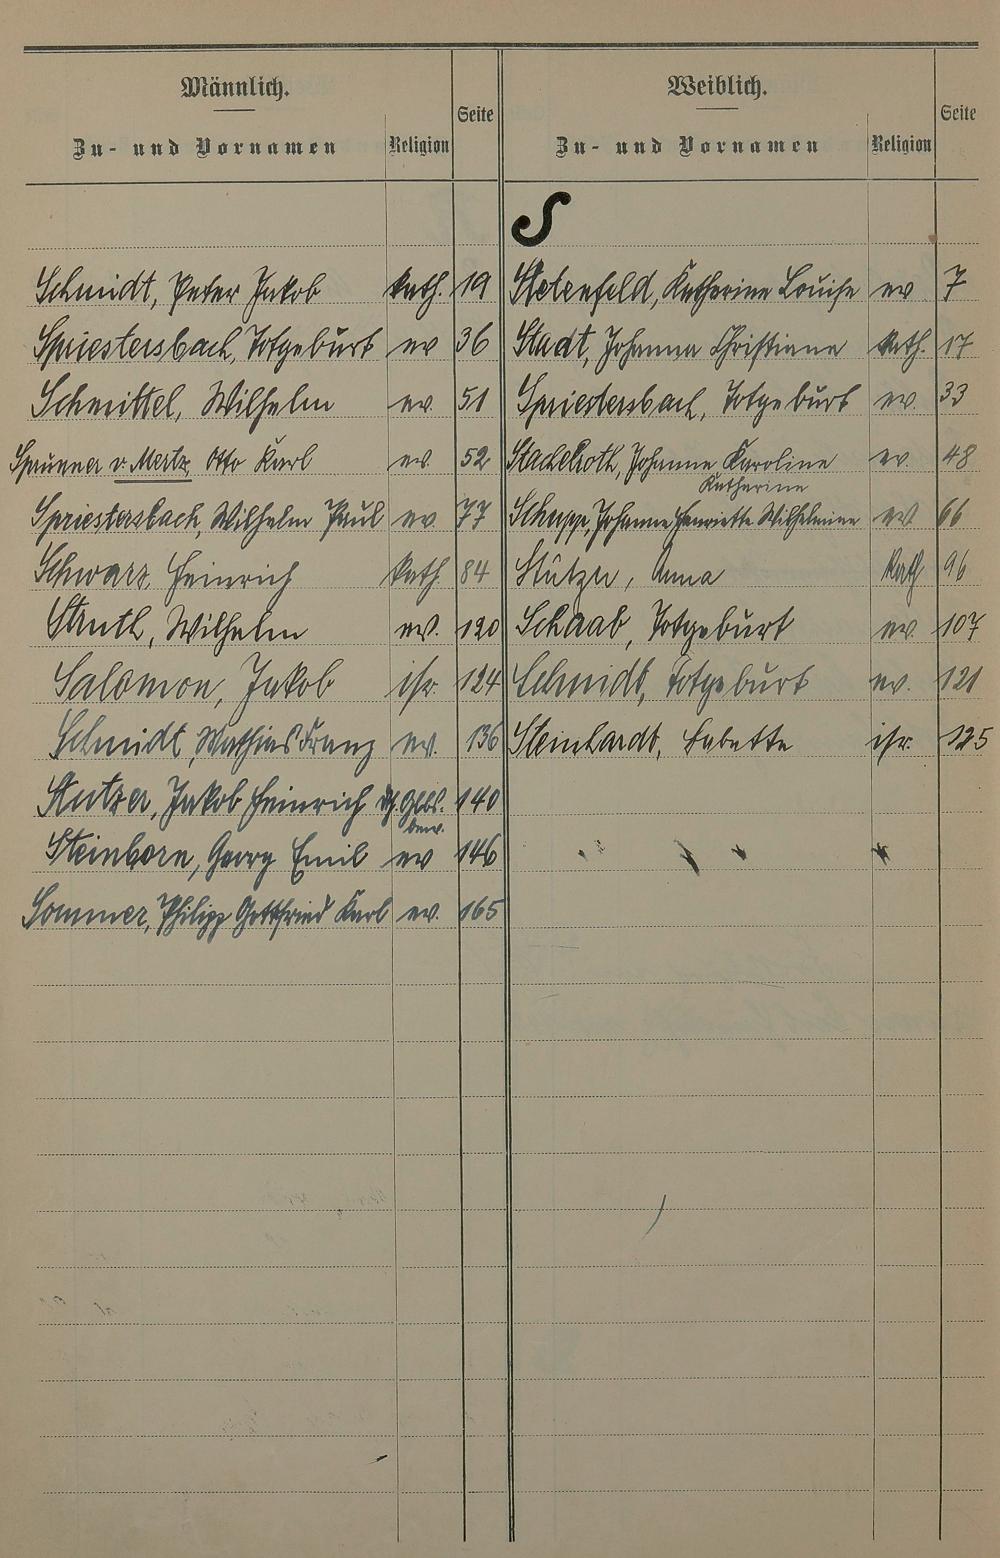 Männlich.
Zu- und Vornamen Religion Seite
Weiblich.
Zu- und Vornamen Religion Seite
S
Schmidt, Peter Jakob kath. 19
Spriestersbach, Totgeburt ev 36
Schmittel, Wilhelm ev. 51
Sprunner v. Mertz, Otto Karl ev. 52
Spriestersbach, Wilhelm Paul ev 77
Schwarz, Heinrich kath. 84
Struth, Wilhelm ev. 120
Salomon, Jakob isr. 124
Schmidt, Mathias Franz ev. 136
Stutzer, Jakob Heinrich 140
Steinborn, Georg Emil ev 146
Sommer, Philipp Gottfried Karl ev. 165
Katherine Louise ev 7
Stadt, Johanna Christiane kath. 17
Spriestersbach, Totgeburt ev. 33
Stachelroth, Johanne Karoline ev. 48
Katharine
Schupp, Johanne Henriette Wilhelmine ev 66
Anna kath 96
Schaab, Totgeburt ev. 107
Schmidt, Totgeburt ev. 121
Steinhardt, Babette isr. 125